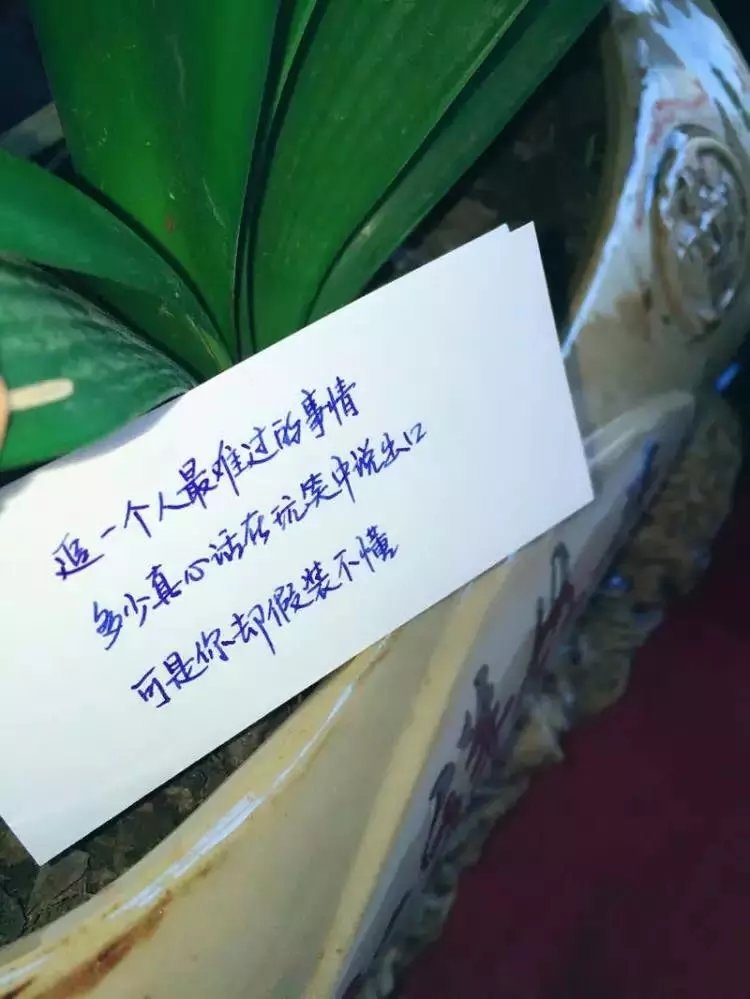 追一个人最难过的事情
多少真心话在玩笑中说出口
可是你却假装不懂